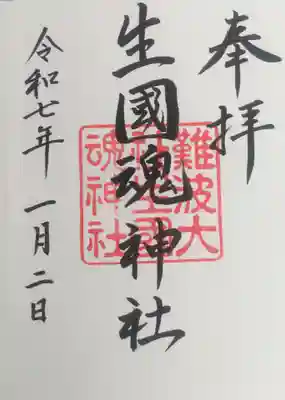 奉拝
生國魂神社
難波大
社生國
魂神社
令和七年 一月二日